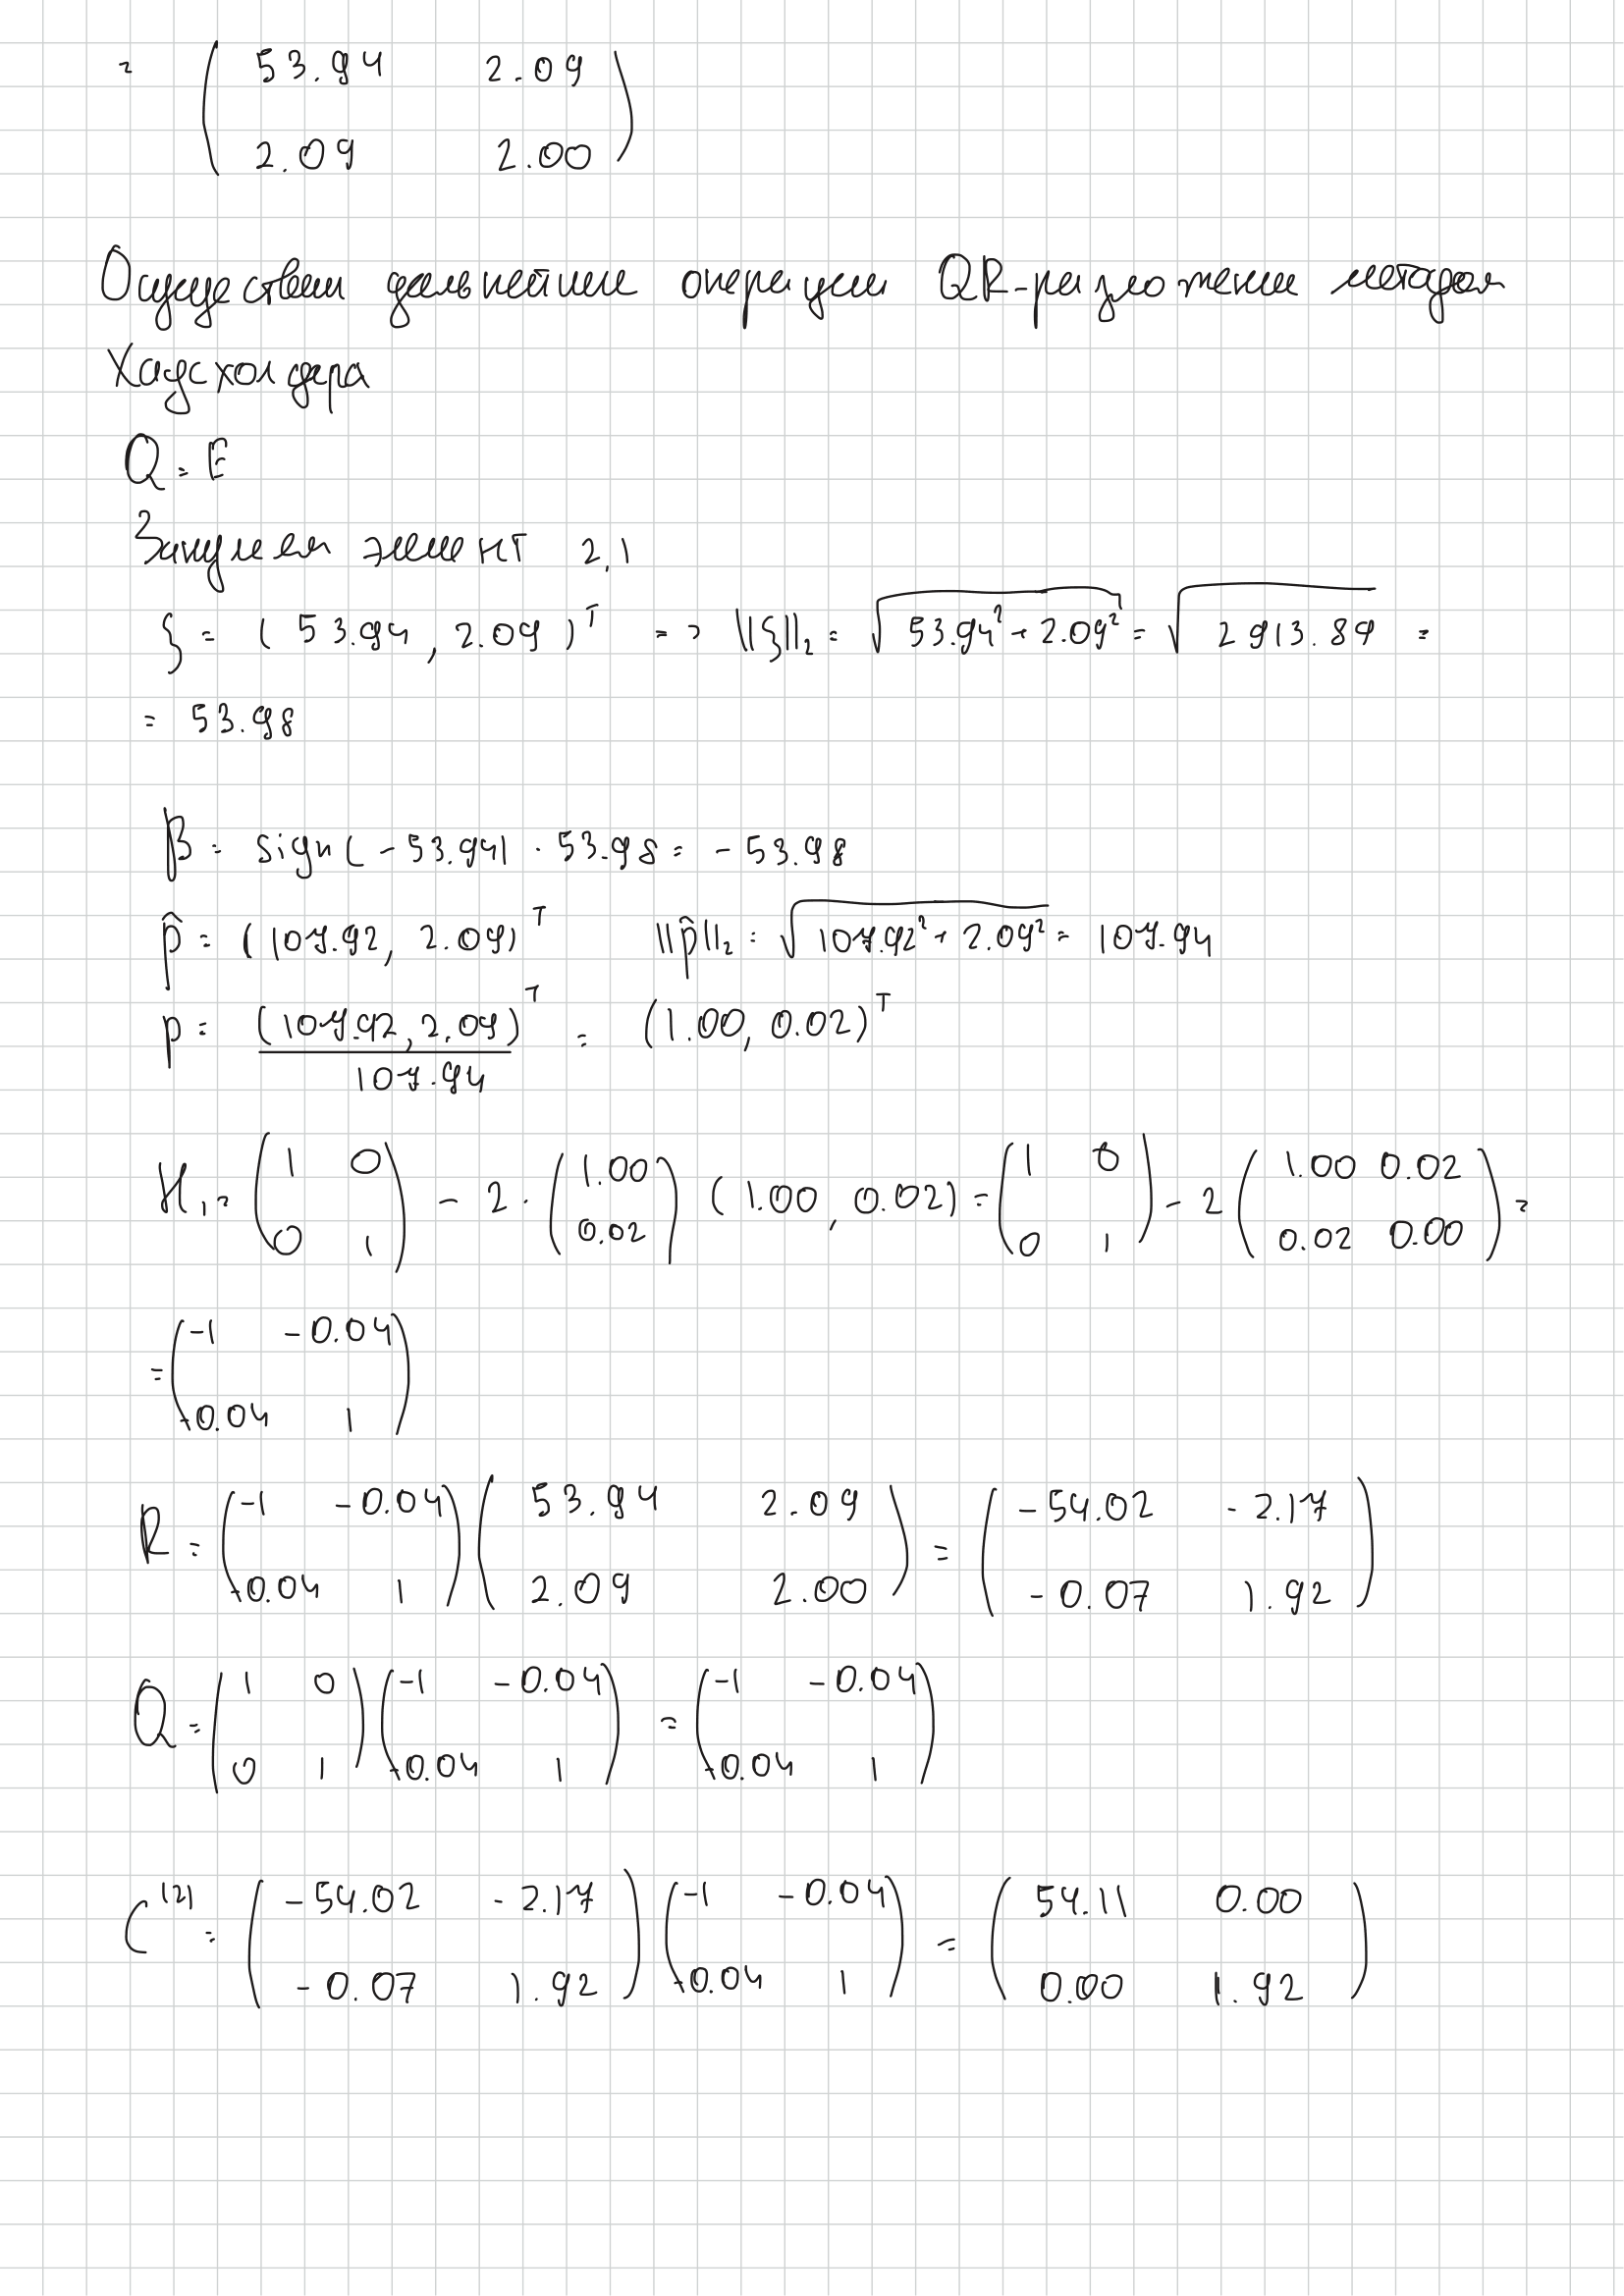 = ( 53.94 2.09
2.09 2.00 )
Осуществим дальнейшие операции QR-разложение методом
Хаусхолдера
Q = E
Занулим элемент 2,1
ξ = ( 53.94 , 2.09 )ᵀ => ||ξ||₂ = √(53.94² + 2.09²) = √2913.89 =
= 53.98
β = sign(-53.94) · 53.98 = -53.98
p̂ = (107.92, 2.09)ᵀ ||p̂||₂ = √(107.92² + 2.09²) = 107.94
p = (107.92, 2.09)ᵀ / 107.94 = (1.00, 0.02)ᵀ
H₁ = ( 1 0 ; 0 1 ) - 2 · ( 1.00 ; 0.02 ) (1.00, 0.02) = ( 1 0 ; 0 1 ) - 2 ( 1.00 0.02 ; 0.02 0.00 ) =
= ( -1 -0.04 ; -0.04 1 )
R = ( -1 -0.04 ; -0.04 1 ) ( 53.94 2.09 ; 2.09 2.00 ) = ( -54.02 -2.17 ; -0.07 1.92 )
Q = ( 1 0 ; 0 1 ) ( -1 -0.04 ; -0.04 1 ) = ( -1 -0.04 ; -0.04 1 )
C⁽²⁾ = ( -54.02 -2.17 ; -0.07 1.92 ) ( -1 -0.04 ; -0.04 1 ) = ( 54.11 0.00 ; 0.00 1.92 )